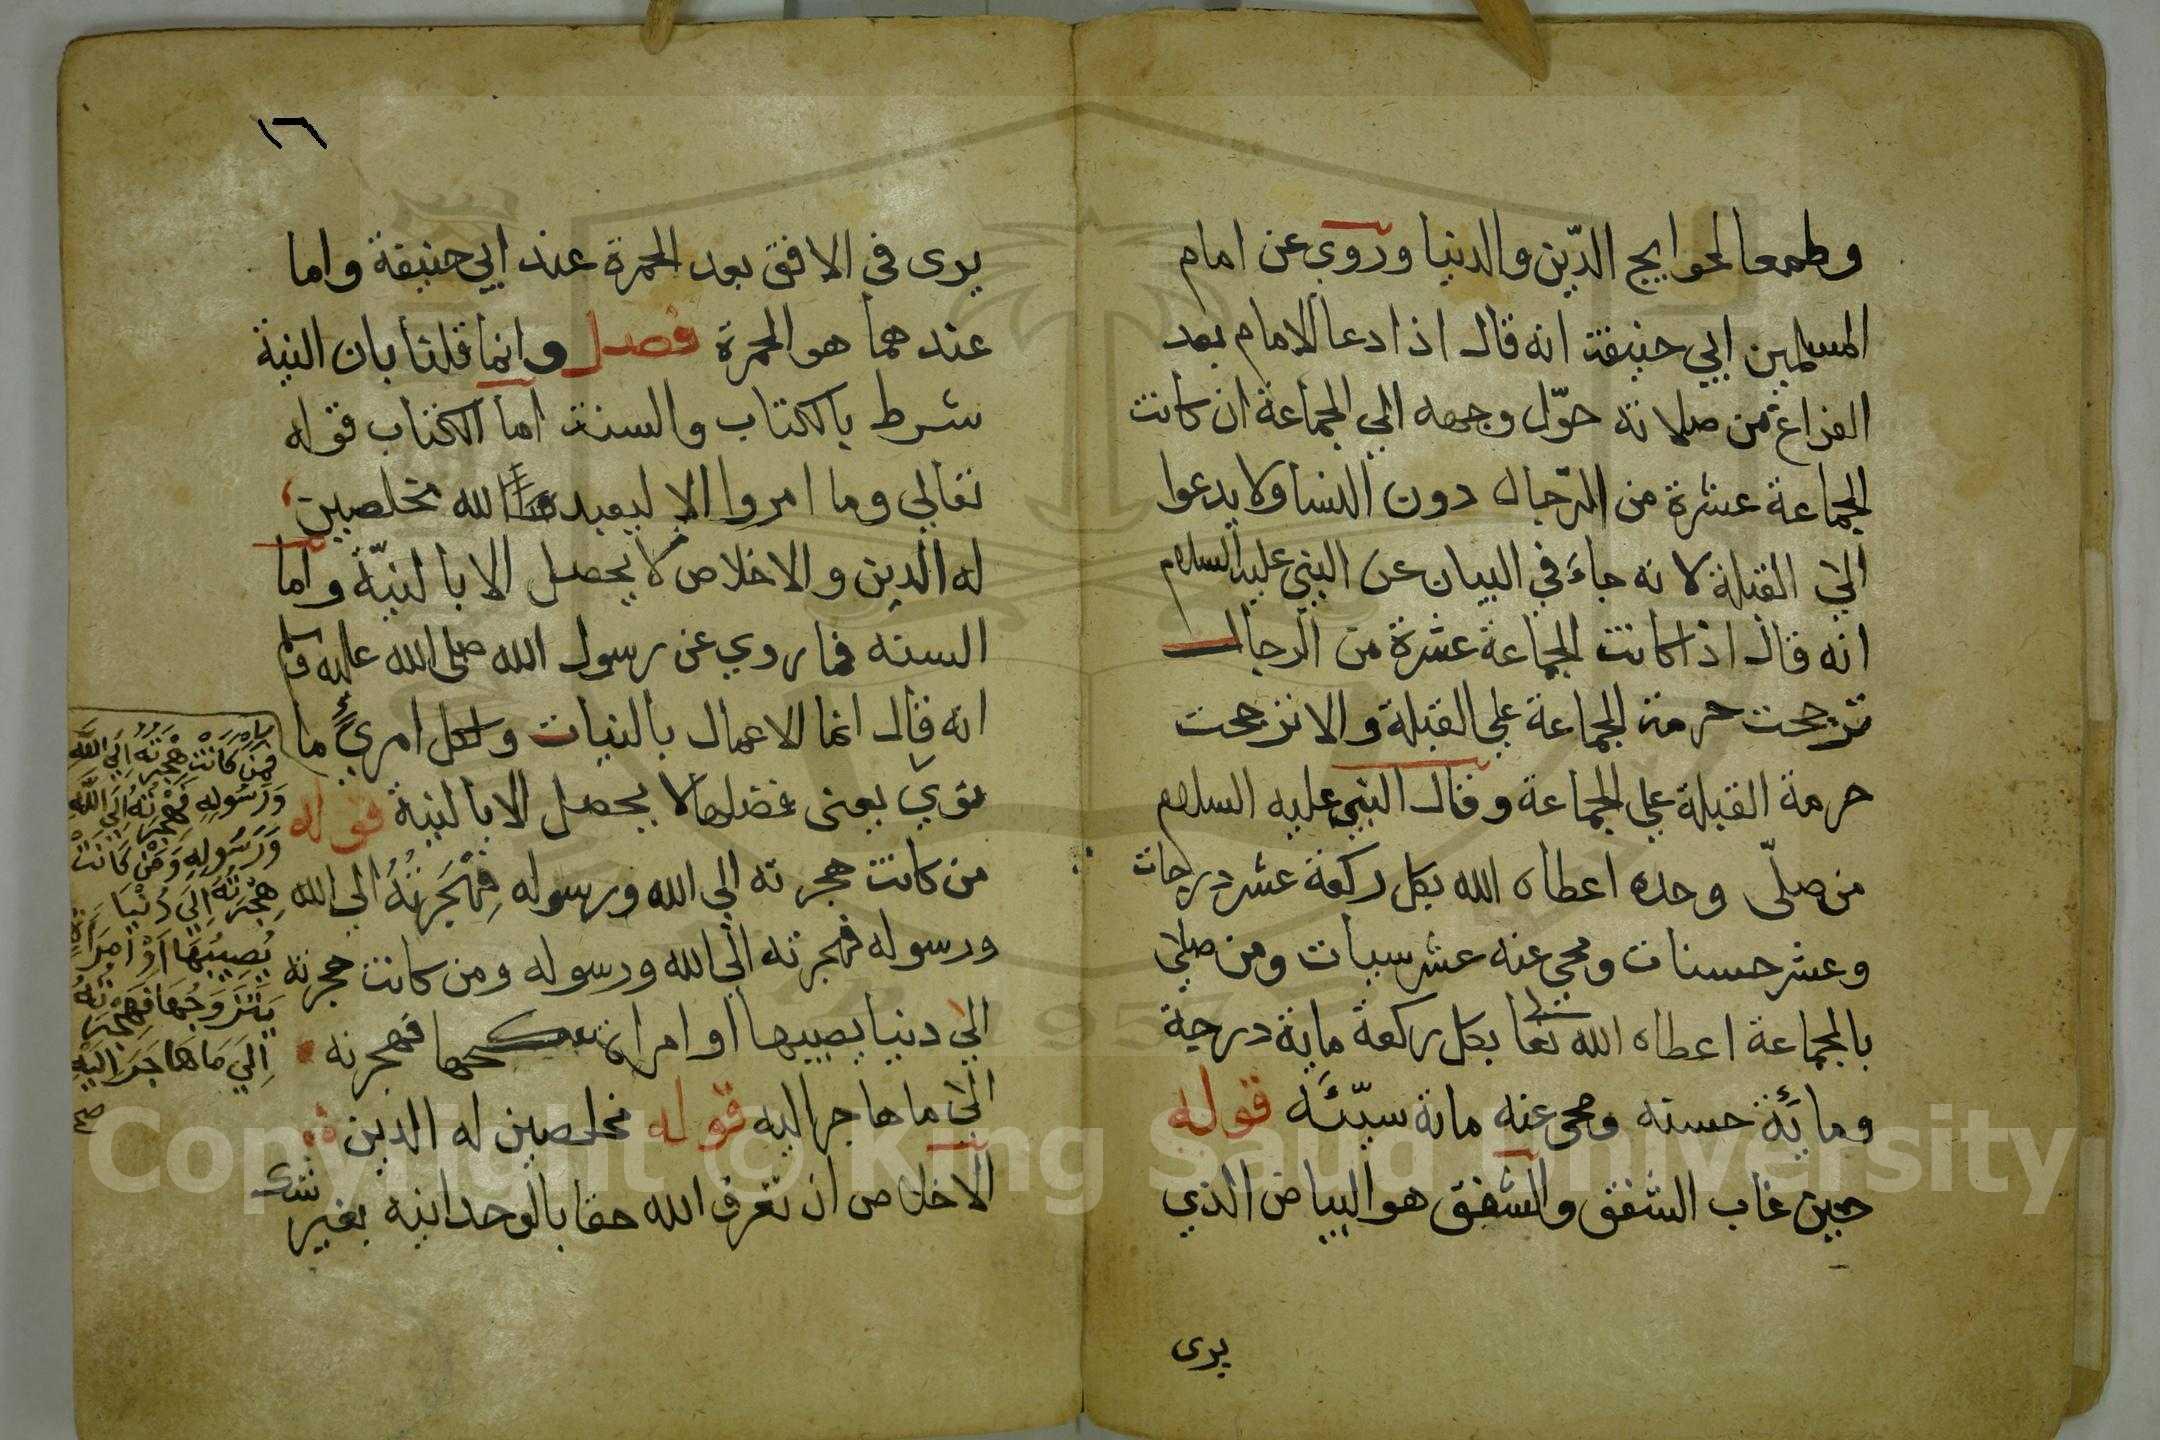 وطمعا لحوايج الدّين والدنيا وروي عن امام
المسلمين ابي حنيفة انه قال اذا دعا الامام بعد
الفراغ من صلاته حوّل وجهه الي الجماعة ان كانت
الجماعة عشرة من الرّجال دون النسا ولا يدعوا
الي القبلة لانه جاء في البيان عن النبي عليه السلام
انه قال اذا كانت الجماعة عشرة من الرجال
ترجحت حرمة الجماعة علي القبلة والا ترجحت
حرمة القبلة علي الجماعة وقال النبي عليه السلام
من صلّي وحده اعطاه الله بكل ركعة عشر درجات
وعشر حسنات ومحي عنه عشر سيات ومن صلي
بالجماعة اعطاه الله تعا بكل ركعة ماية درجة
ومائة حسنه ومحي عنه مائة سيّئة قوله
حين غاب الشفق والشفق هو البياض الذي
يرى
١٦
يرى في الافق بعد الحمرة عند ابي حنيفة واما
عندهما هو الحمرة فصل وانما قلنا بان النية
شرط بالكتاب والسنة اما الكتاب قوله
تعالي وما امروا الا ليعبدوا الله مخلصين
له الدين والاخلاص لا يحصل الا بالنيّة واما
السنه فما روي عن رسول الله صلي الله عليه وسلم
انه قال انما الاعمال بالنيات ولكل امرئ ما
نوي يعنى فضلها لا يحصل الا بالنية قوله
من كانت هجرته الي الله ورسوله فهْجَرتُهُ الي الله
ورسوله فهجرته الي الله ورسوله ومن كانت هجرته
الي دنيا يصيبها او امراة ينكحها فهجرته
الي ما هاجر اليه قوله مخلصين له الدين
الاخلاص ان تعرف الله حقا بالوحدانيه بغير شك
فَمَن كَانَتْ هِجْرَتُهُ اِلَي اللَّهِ
وَرَسُولِهِ فَهِجْرَتُهُ اِلَي اللَّهِ
وَرَسُولِهِ وَمَنْ كَانَتْ
هِجْرَتُهُ اِلَي دُنْيَا
يُصِيبُهَا اَوْ امْرَاَةٍ
يَتَزَوَّجُهَا فَهِجْرَتُهُ
اِلَي مَا هَاجَرَ اِلَيْهِ
صح
Copyright © King Saud University
1957